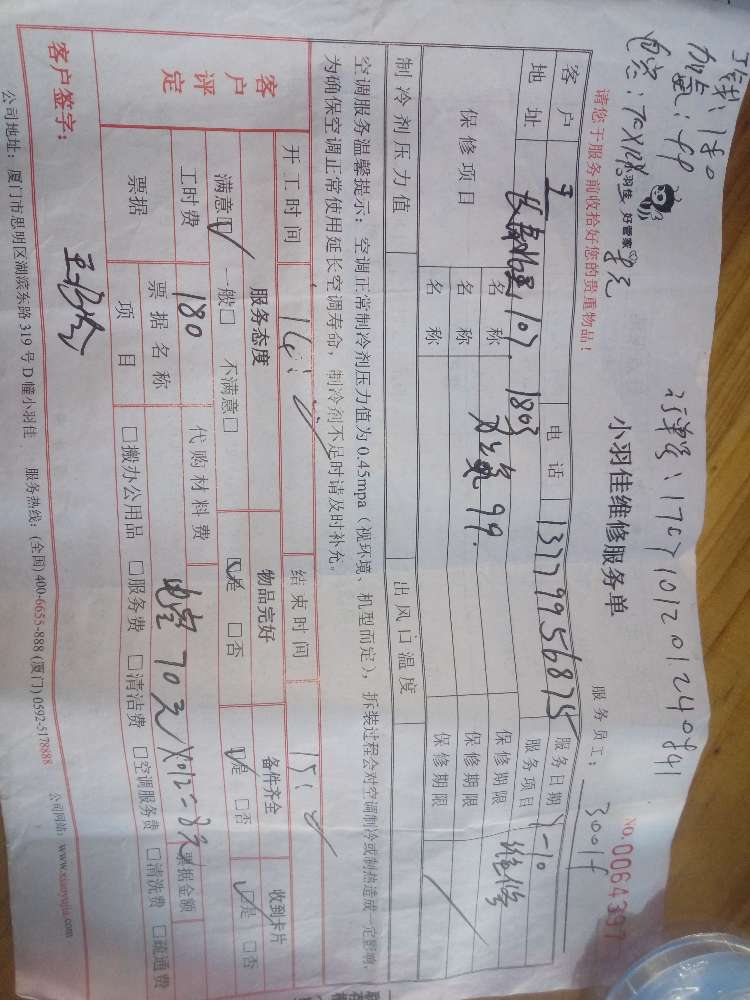 工钱:180
加氟:99
订单号:170710120124084
羽佳 好管家
小羽佳维修服务单
NO.0064397
请您于服务前收拾好您的贵重物品!
服务员工:
客户 王 电话 13779956875 服务日期
地址 107. 1803 服务项目 维修
保修项目 名称 99. 保修期限
名称 保修期限
名称 保修期限
制冷剂压力值 出风口温度
空调服务温馨提示:空调正常制冷剂压力值为 0.45mpa(视环境、机型而定),拆装过程会对空调制冷或制热造成一定影响,
为确保空调正常使用延长空调寿命,制冷剂不足时请及时补充。
开工时间 14: 结束时间 15:
客户评定 服务态度 物品完好 备件齐全 收到卡片
满意□ 一般□ 不满意□ □是 □否 □是 □否 □是 □否
工时费 180 代购材料费 70元X0.12=8元
票据 票据名称 票据金额
项目 □搬办公用品 □服务费 □清洁费 □空调服务费 □清洗费 □疏通费
客户签字:
公司地址:厦门市思明区湖滨东路 319 号 D 幢小羽佳 服务热线:(全国)400-6655-888 (厦门)0592-5178888 公司网站:www.xiaoyujia.com